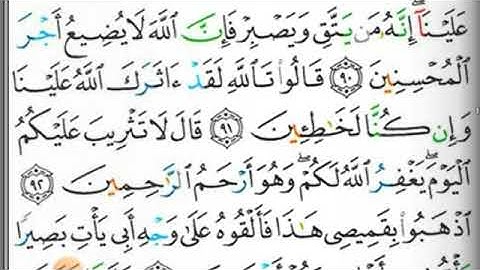 عَلَيْنَآ ۖ إِنَّهُۥ مَن يَتَّقِ وَيَصْبِرْ فَإِنَّ ٱللَّهَ لَا يُضِيعُ أَجْرَ
ٱلْمُحْسِنِينَ ٩٠ قَالُوا۟ تَٱللَّهِ لَقَدْ ءَاثَرَكَ ٱللَّهُ عَلَيْنَا
وَإِن كُنَّا لَخَـٰطِـِٔينَ ٩١ قَالَ لَا تَثْرِيبَ عَلَيْكُمُ
ٱلْيَوْمَ ۖ يَغْفِرُ ٱللَّهُ لَكُمْ ۖ وَهُوَ أَرْحَمُ ٱلرَّٰحِمِينَ ٩٢
ٱذْهَبُوا۟ بِقَمِيصِى هَـٰذَا فَأَلْقُوهُ عَلَىٰ وَجْهِ أَبِى يَأْتِ بَصِيرًا